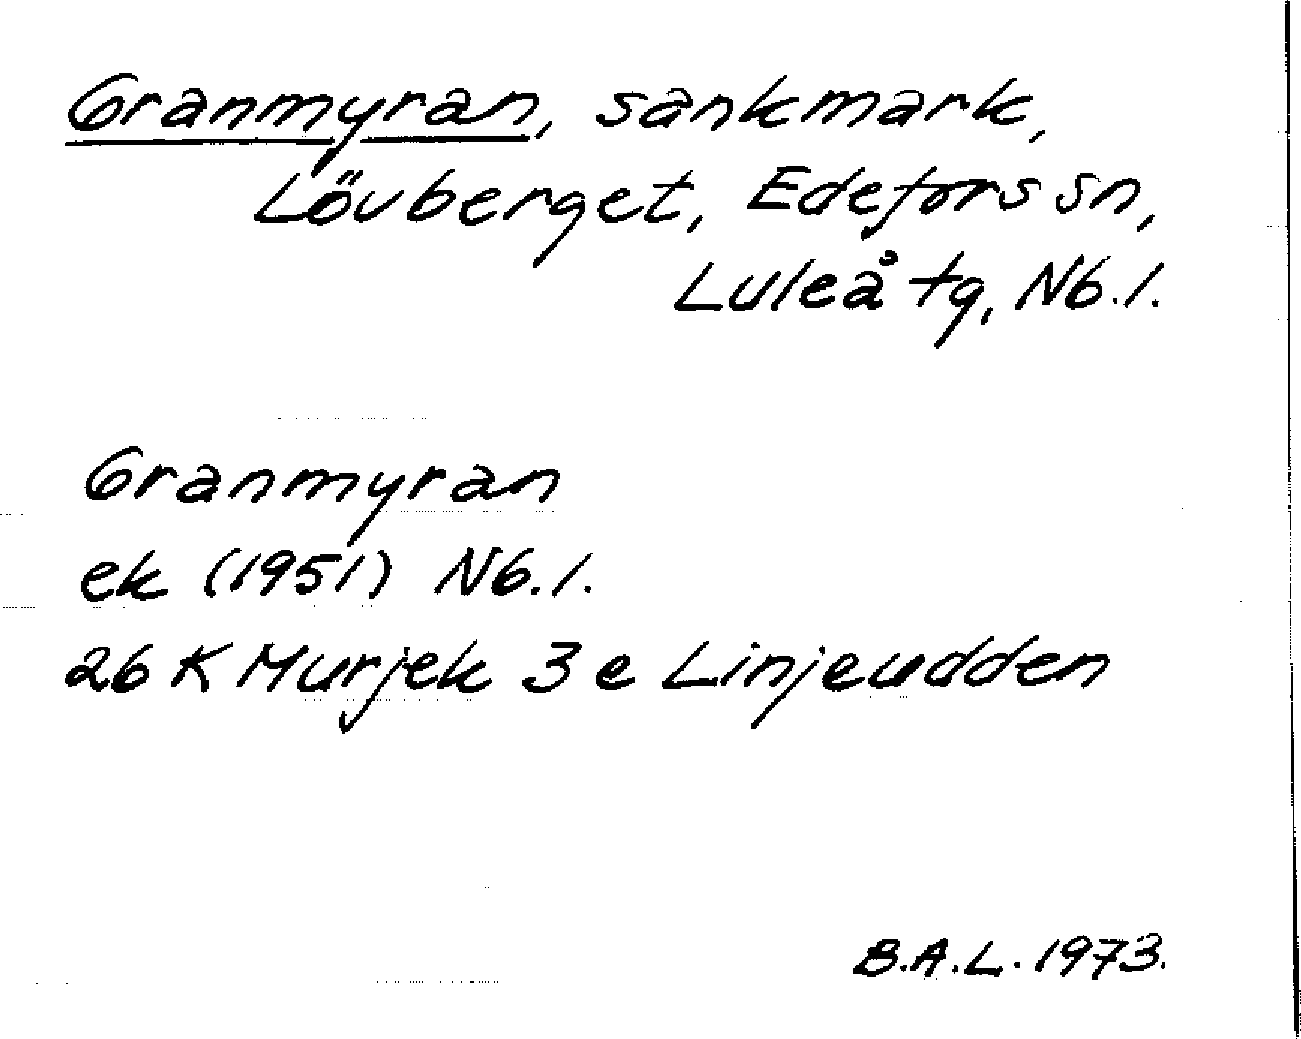 Granmyran, sankmark,
Lövberget, Edefors sn,
Luleå tg, Nb.l.
Granmyran
ek (1951) Nb.l.
26 K Murjek 3 e Linjeudden
B.A.L. 1973.